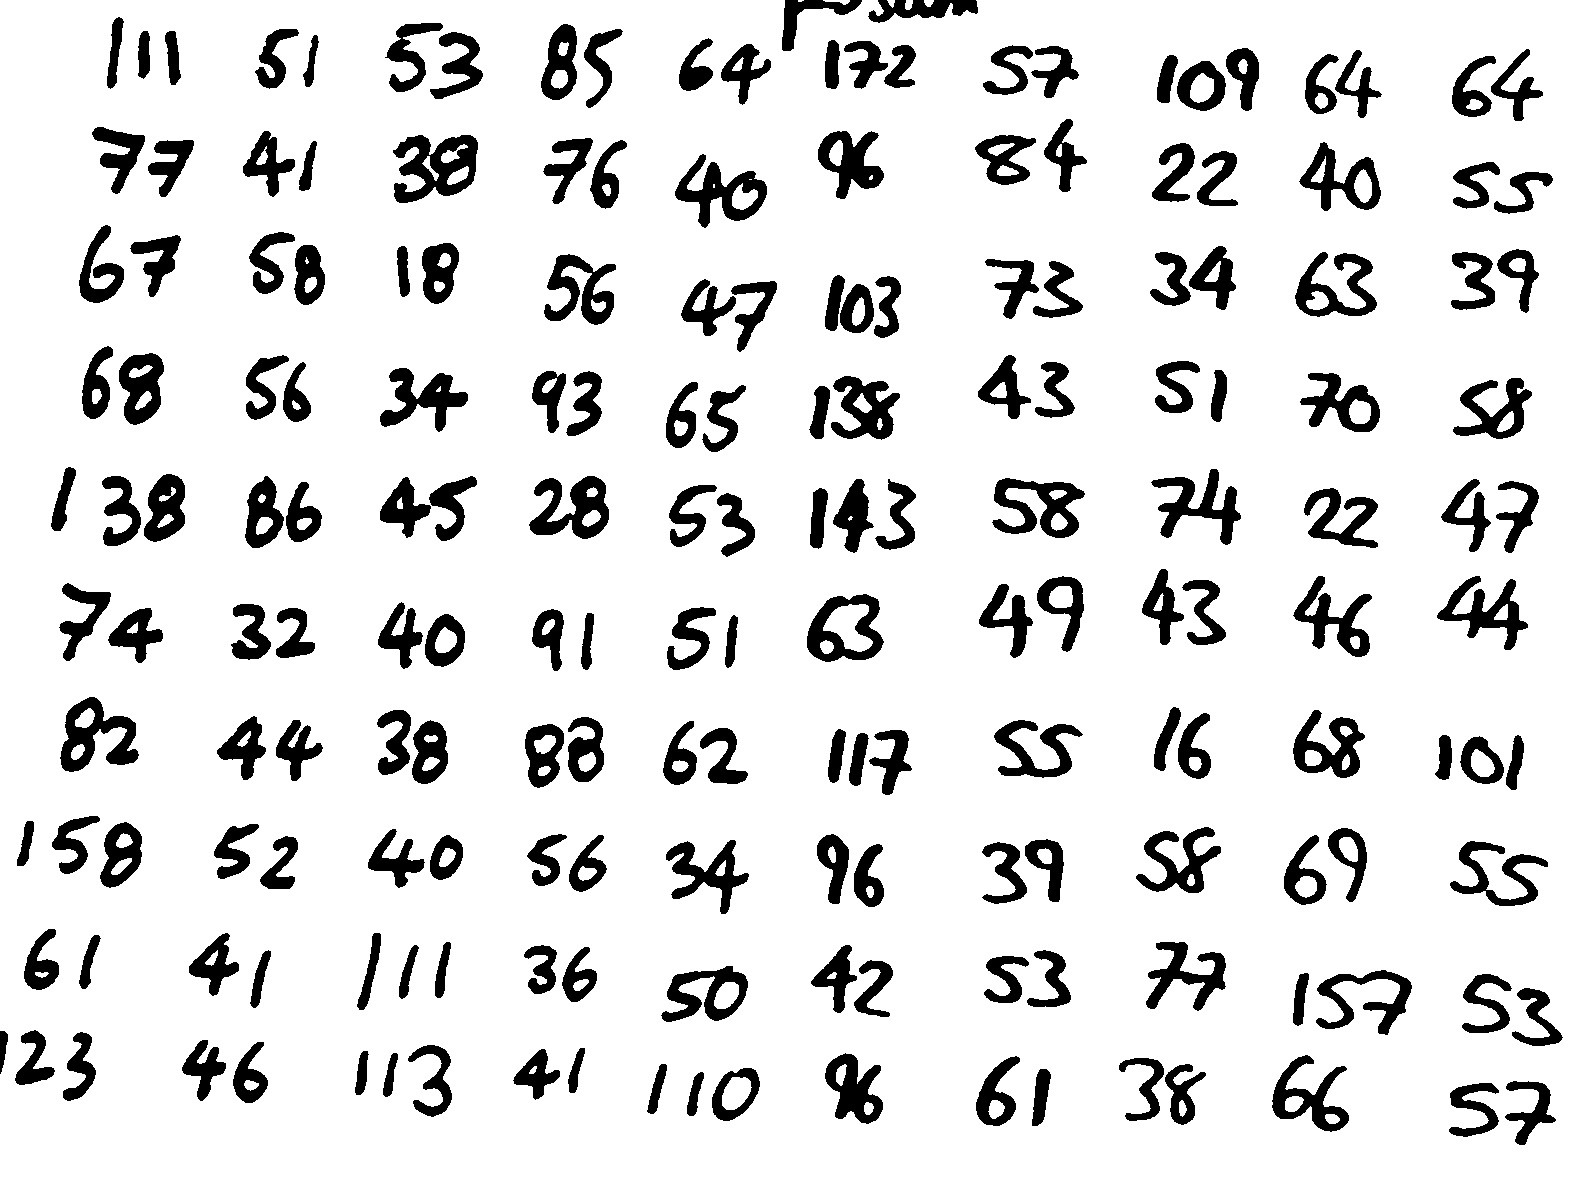 111 51 53 85 64 172 57 109 64 64
77 41 38 76 40 96 84 22 40 55
67 58 18 56 47 103 73 34 63 39
68 56 34 93 65 138 43 51 70 58
138 86 45 28 53 143 58 74 22 47
74 32 40 91 51 63 49 43 46 44
82 44 38 88 62 117 55 16 68 101
158 52 40 56 34 96 39 58 69 55
61 41 111 36 50 42 53 77 157 53
123 46 113 41 110 96 61 38 66 57